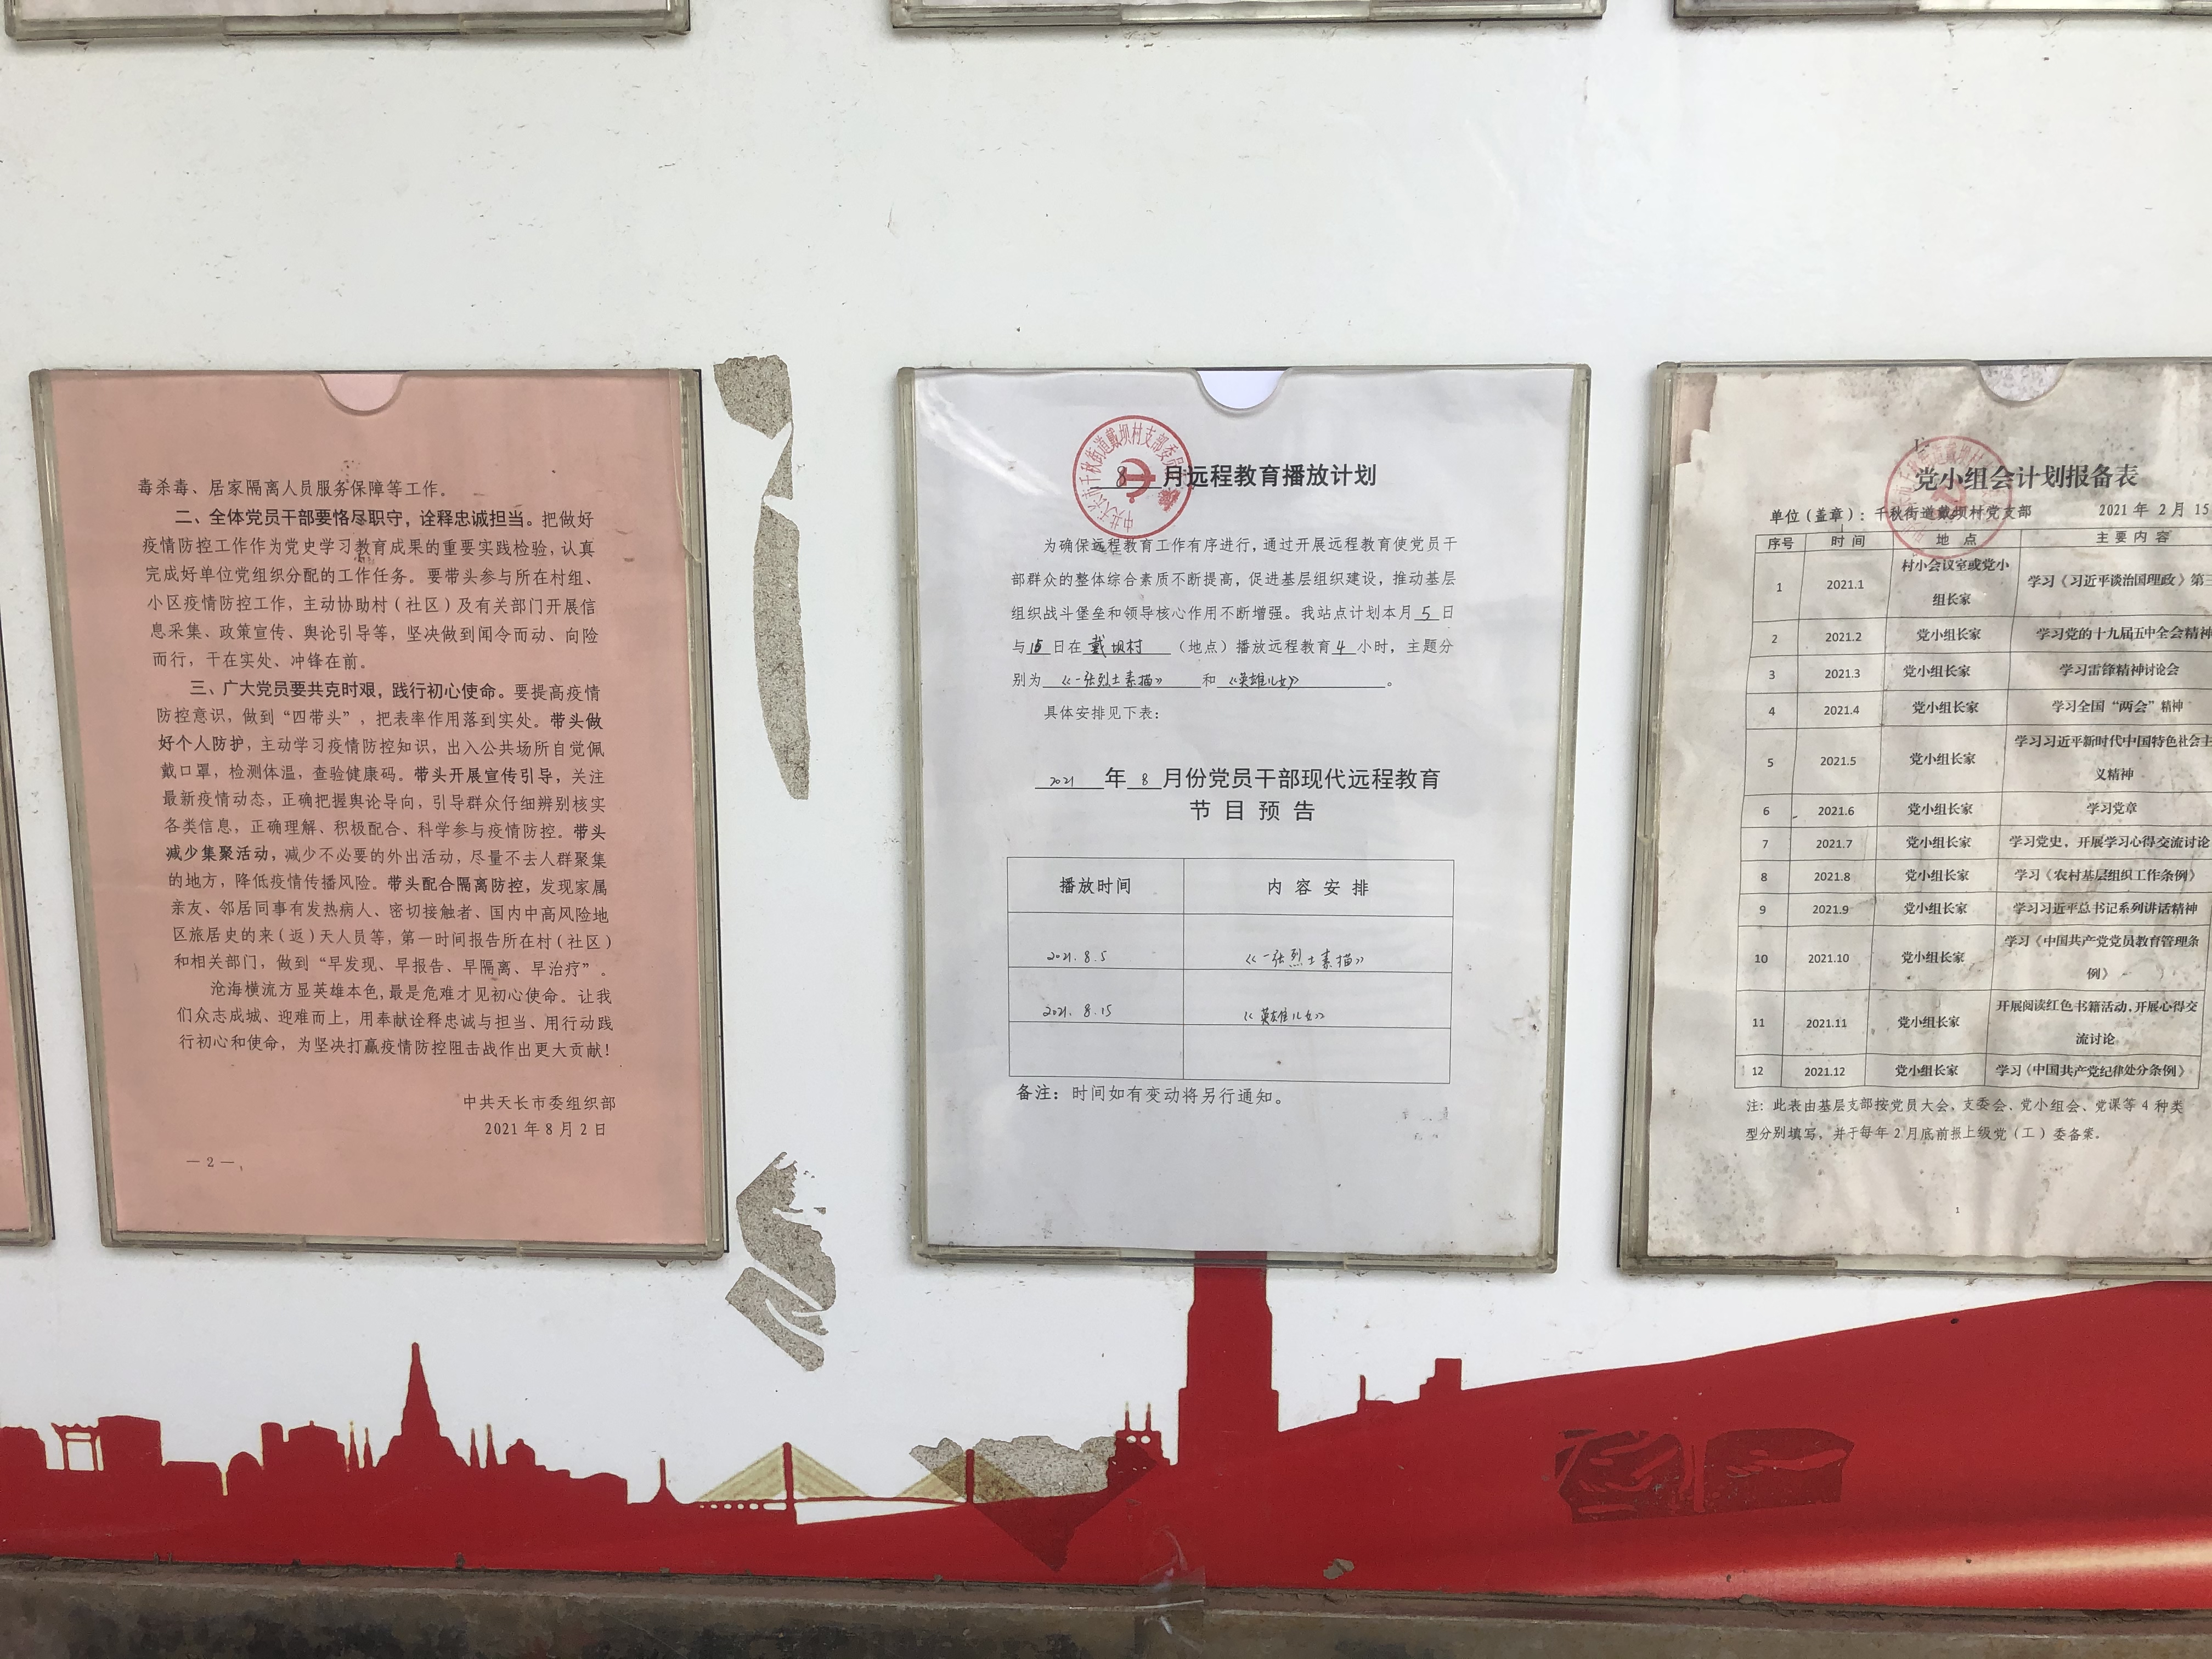 毒杀毒、居家隔离人员服务保障等工作。
二、全体党员干部要恪尽职守，诠释忠诚担当。把做好
疫情防控工作作为党史学习教育成果的重要实践检验，认真
完成好单位党组织分配的工作任务。要带头参与所在村组、
小区疫情防控工作，主动协助村（社区）及有关部门开展信
息采集、政策宣传、舆论引导等，坚决做到闻令而动、向险
而行，干在实处、冲锋在前。
三、广大党员要共克时艰，践行初心使命。要提高疫情
防控意识，做到“四带头”，把表率作用落到实处。带头做
好个人防护，主动学习疫情防控知识，出入公共场所自觉佩
戴口罩，检测体温，查验健康码。带头开展宣传引导，关注
最新疫情动态，正确把握舆论导向，引导群众仔细辨别核实
各类信息，正确理解、积极配合、科学参与疫情防控。带头
减少集聚活动，减少不必要的外出活动，尽量不去人群聚集
的地方，降低疫情传播风险。带头配合隔离防控，发现家属
亲友、邻居同事有发热病人、密切接触者、国内中高风险地
区旅居史的来（返）天人员等，第一时间报告所在村（社区）
和相关部门，做到“早发现、早报告、早隔离、早治疗”。
沧海横流方显英雄本色，最是危难才见初心使命。让我
们众志成城、迎难而上，用奉献诠释忠诚与担当、用行动践
行初心和使命，为坚决打赢疫情防控阻击战作出更大贡献！
中共天长市委组织部
2021年8月2日
—2—
中共天长市千秋街道戴坝村支部委员会
8月远程教育播放计划
为确保远程教育工作有序进行，通过开展远程教育使党员干
部群众的整体综合素质不断提高，促进基层组织建设，推动基层
组织战斗堡垒和领导核心作用不断增强。我站点计划本月5日
与15日在戴坝村（地点）播放远程教育4小时，主题分
别为《一张烈士素描》和《英雄儿女》。
具体安排见下表：
2021年8月份党员干部现代远程教育
节目预告
播放时间 内容安排
2021.8.5 《一张烈士素描》
2021.8.15 《英雄儿女》
备注：时间如有变动将另行通知。
党小组会计划报备表
单位（盖章）：千秋街道戴坝村党支部 2021年2月15
序号 时间 地点 主要内容
1 2021.1 村小会议室或党小组长家 学习《习近平谈治国理政》第三
2 2021.2 党小组长家 学习党的十九届五中全会精神
3 2021.3 党小组长家 学习雷锋精神讨论会
4 2021.4 党小组长家 学习全国“两会”精神
5 2021.5 党小组长家 学习习近平新时代中国特色社会主义精神
6 2021.6 党小组长家 学习党章
7 2021.7 党小组长家 学习党史，开展学习心得交流讨论
8 2021.8 党小组长家 学习《农村基层组织工作条例》
9 2021.9 党小组长家 学习习近平总书记系列讲话精神
10 2021.10 党小组长家 学习《中国共产党党员教育管理条例》
11 2021.11 党小组长家 开展阅读红色书籍活动，开展心得交流讨论
12 2021.12 党小组长家 学习《中国共产党纪律处分条例》
注：此表由基层支部按党员大会、支委会、党小组会、党课等4种类
型分别填写，并于每年2月底前报上级党（工）委备案。
1